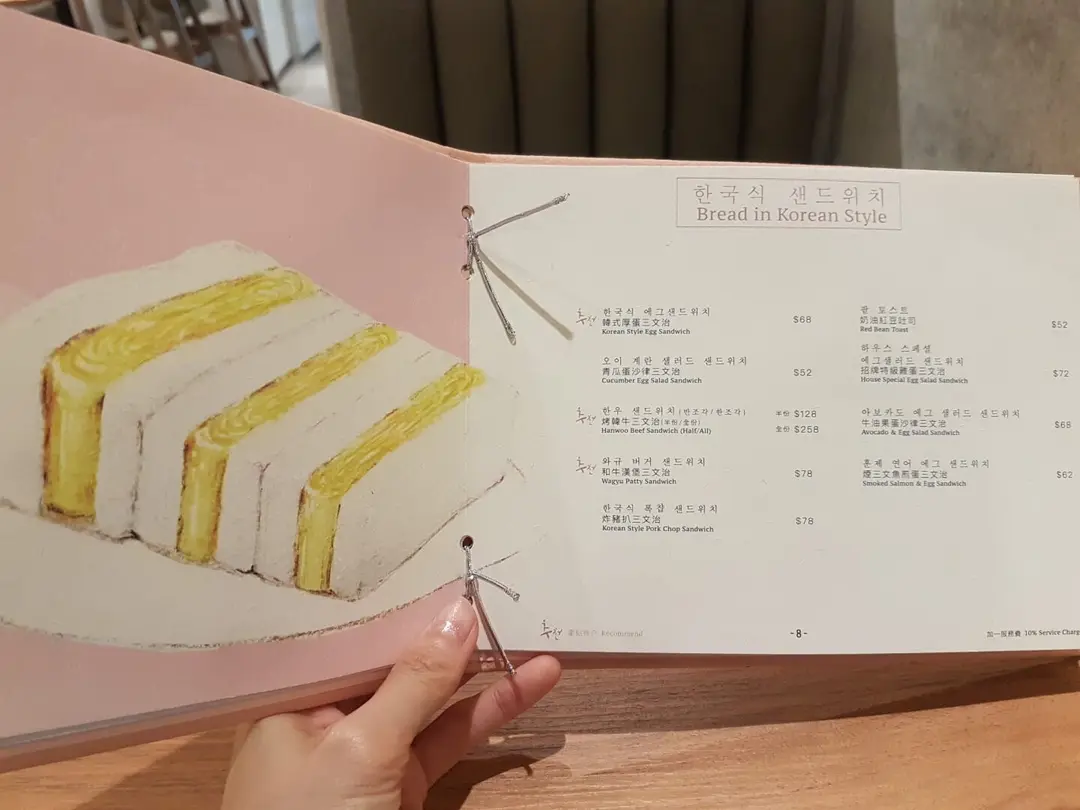 한국식 샌드위치
Bread in Korean Style
추선 한국식 에그샌드위치
韓式厚蛋三文治 $68
Korean Style Egg Sandwich
오이 계란 샐러드 샌드위치
青瓜蛋沙律三文治 $52
Cucumber Egg Salad Sandwich
추선 한우 샌드위치 (반조각/한조각) 半份 $128
烤韓牛三文治(半份/全份) 全份 $258
Hanwoo Beef Sandwich (Half/All)
추선 와규 버거 샌드위치
和牛漢堡三文治 $78
Wagyu Patty Sandwich
한국식 폭찹 샌드위치
炸豬扒三文治 $78
Korean Style Pork Chop Sandwich
팥 토스트
奶油紅豆吐司 $52
Red Bean Toast
하우스 스페셜
에그샐러드 샌드위치
招牌特級雞蛋三文治 $72
House Special Egg Salad Sandwich
아보카도 에그 샐러드 샌드위치
牛油果蛋沙律三文治 $68
Avocado & Egg Salad Sandwich
훈제 연어 에그 샌드위치
煙三文魚煎蛋三文治 $62
Smoked Salmon & Egg Sandwich
추선 Recommend
-8-
加一服務費 10% Service Charg